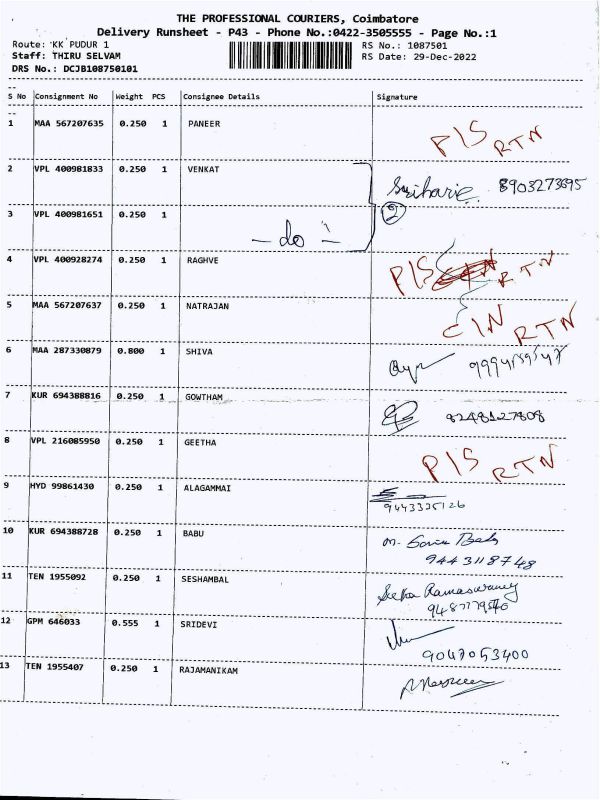 THE PROFESSIONAL COURIERS, Coimbatore
Delivery Runsheet - P43 - Phone No.:0422-3505555 - Page No.:1
Route: KK PUDUR 1 RS No.: 1087501
Staff: THIRU SELVAM RS Date: 29-Dec-2022
DRS No.: DCJB108750101
S No Consignment No Weight PCS Consignee Details Signature
1 MAA 567207635 0.250 1 PANEER P/S RTN
2 VPL 400981833 0.250 1 VENKAT Sriharie 8903273695
3 VPL 400981651 0.250 1 - do - 2
4 VPL 400928274 0.250 1 RAGHVE P/S RTN
5 MAA 567207637 0.250 1 NATRAJAN C/N RTN
6 MAA 287330879 0.800 1 SHIVA
7 KUR 694388816 0.250 1 GOWTHAM 8248127808
8 VPL 216085950 0.250 1 GEETHA P/S RTN
9 HYD 99861430 0.250 1 ALAGAMMAI 9443335126
10 KUR 694388728 0.250 1 BABU
9443118748
11 TEN 1955092 0.250 1 SESHAMBAL Ramaswamy
12 GPM 646033 0.555 1 SRIDEVI
9047053400
13 TEN 1955407 0.250 1 RAJAMANIKAM